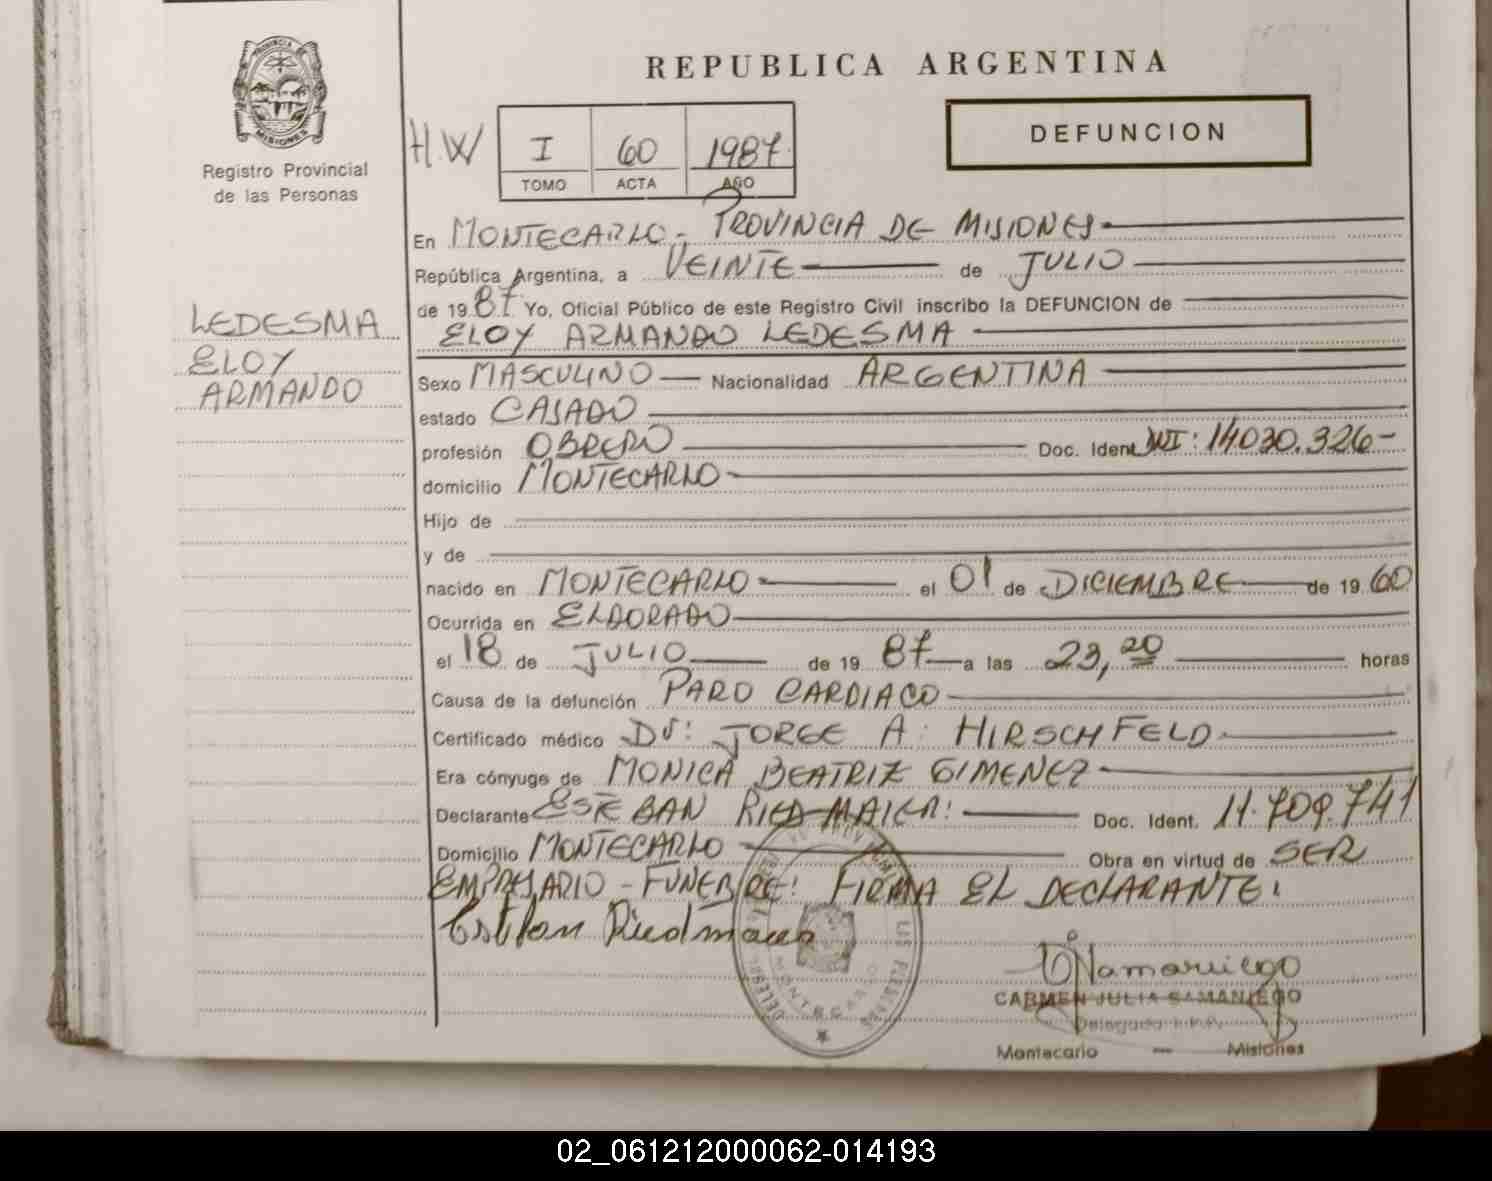 REPUBLICA ARGENTINA
PROVINCIA DE
MISIONES
Registro Provincial
de las Personas
H.W
I 60 1987
TOMO ACTA AÑO
DEFUNCION
LEDESMA
ELOY
ARMANDO
En MONTECARLO - PROVINCIA DE MISIONES
República Argentina, a VEINTE de JULIO
de 19 87 Yo, Oficial Público de este Registro Civil inscribo la DEFUNCION de
ELOY ARMANDO LEDESMA
Sexo MASCULINO Nacionalidad ARGENTINA
estado CASADO
profesión OBRERO Doc. Ident. DNI: 14030.326-
domicilio MONTECARLO
Hijo de
y de
nacido en MONTECARLO el 01 de DICIEMBRE de 19 60
Ocurrida en ELDORADO
el 18 de JULIO de 19 87 a las 23,20 horas
Causa de la defunción PARO CARDIACO
Certificado médico Dr: JORGE A. HIRSCHFELD
Era cónyuge de MONICA BEATRIZ GIMENEZ
Declarante ESTEBAN RIEDMAIER: Doc. Ident. 11.709.741
Domicilio MONTECARLO Obra en virtud de SER
EMPRESARIO - FUNEBRE: FIRMA EL DECLARANTE:
Esteban Riedmaier
MONTECARLO
CARMEN JULIA SAMANIEGO
Delegada
Montecarlo — Misiones
02_061212000062-014193